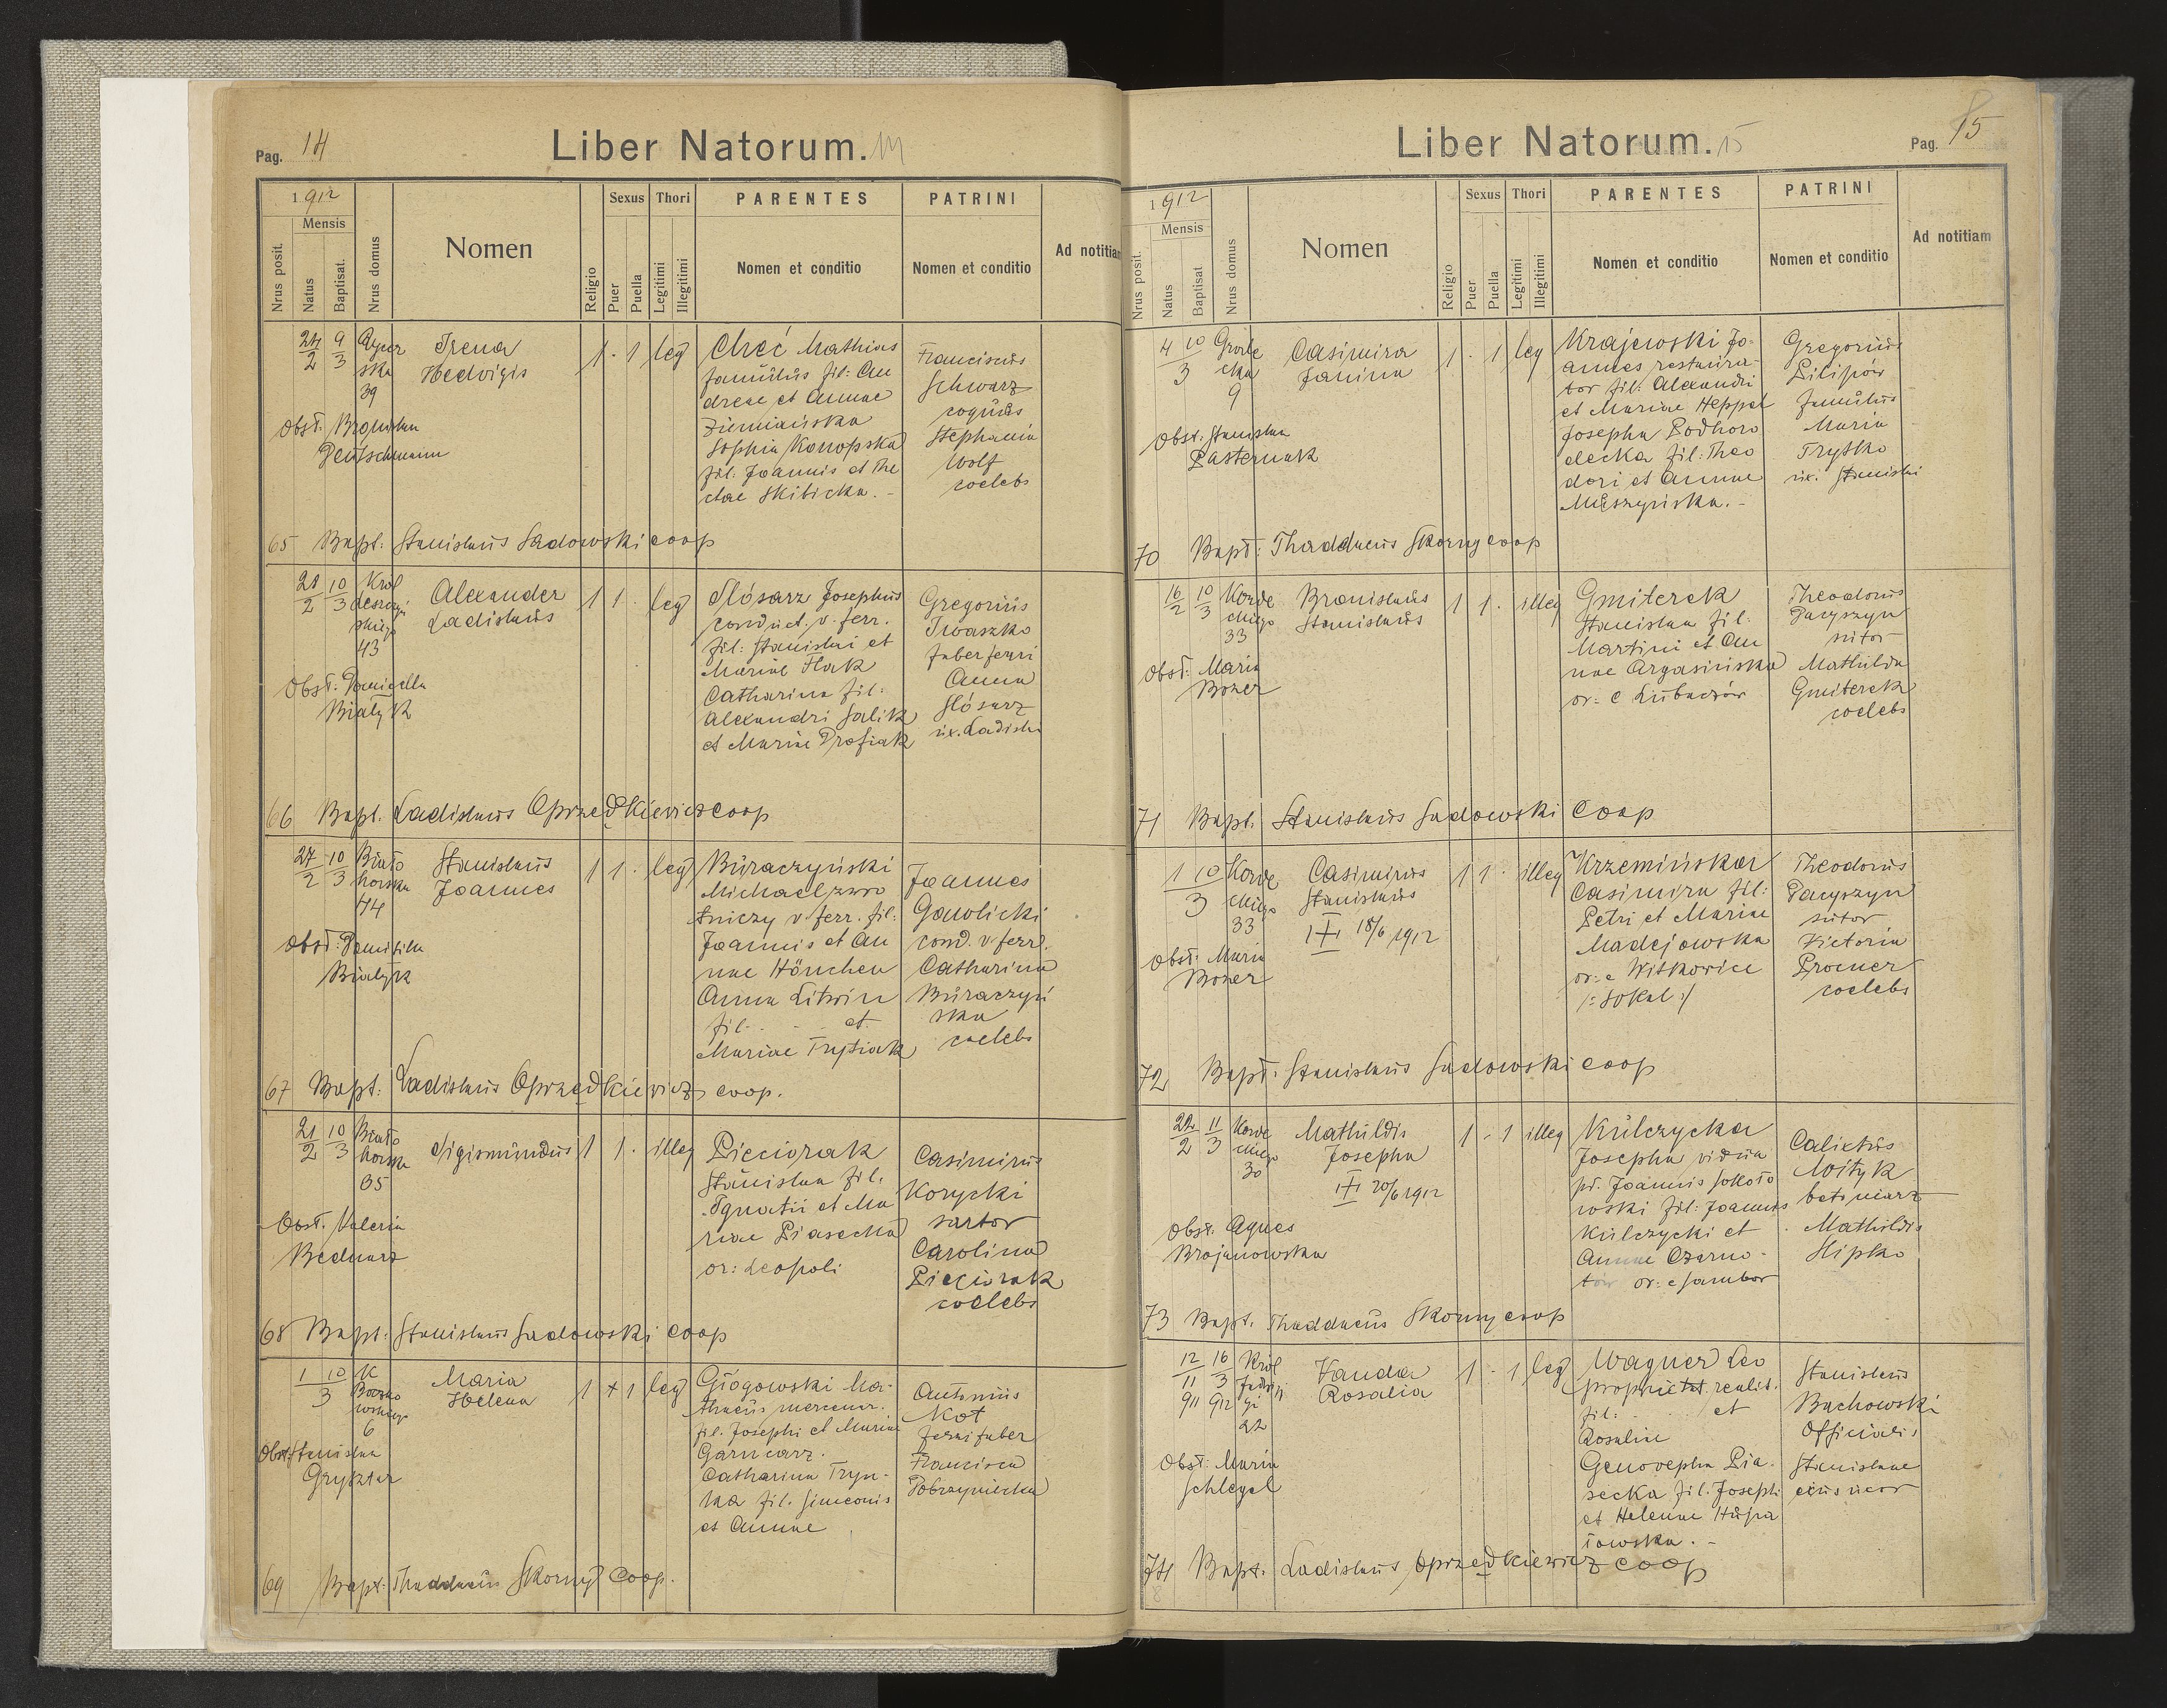 Pag. 14
Liber Natorum. 14
1912
Mensis
Nrus posit.
Natus
Baptisat.
Nrus domus
Nomen
Religio
Sexus
Puer
Puella
Thori
Legitimi
Illegitimi
PARENTES
Nomen et conditio
PATRINI
Nomen et conditio
Ad notitiam
24/2 9/3
ska
39
Irena
Hedvigis
1 · 1 leg
Chreć Mathias
famulus fil: An
dreae et Annae
Ziemiańska
Sophia Konopska
fil. Joannis et The
clae Skibicka. -
Franciscus
Schwarz
coquus
Stephania
Wolf
coelebs
Obst. Bronislaa
Deutschmann
65 Bapt. Stanislaus Sadowski coop
21/2 10/3
Król
Leszczyń
skiego
43
Alexander
Ladislaus
1 1 · leg
Slósarz Josephus
conduct. v. ferr.
fil: Stanislai et
Mariae Flak
Catharina fil:
Alexandri Salik
et Mariae Profiak
Gregorius
Iwaszko
faber ferri
Anna
Slósarz
ux. Ladislai
Obst. Domicella
Bialyk
66 Bapt. Ladislaus Oprzędkiewicz coop
27/2 10/3
Biało
horska
44
Stanislaus
Joannes
1 1 · leg
Buraczyński
Michael zwro
tniczy v. ferr. fil:
Joannis et An
nae Hönchen
Anna Litwin
fil - - - et
Mariae Trysiak
Joannes
Gawlicki
cond. v. ferr.
Catharina
Buraczyń
ska
coelebs
Obst: Domicilla
Bialyk
67 Bapt: Ladislaus Oprzędkiewicz coop.
21/2 10/3
Biało
horska
35
Sigismundus
1 1 · illeg
Pieciorak
Stanislaa fil.
Ignatii et Ma
riae Piasecka
or: Leopoli
Casimirus
Korycki
sartor
Carolina
Pieciorak
coelebs
Obst. Valeria
Bednarz
68 Bapt: Stanislaus Sadowski coop
1 10
3
K
wskiego
6
Maria
Helena
1 + 1 leg
Głogowski Ma-
thaeus mercenar.
fil. Josephi et Mariae
Garncarz.
Catharina Tryn-
ka fil. Simeonis
et Annae
Antonius
Kot
ferri faber
Francisca
Dobrzyniecka
Obst. Stanislaa
Gryktar
69 Bapt. Thaddaeus Skorny coop.
Liber Natorum. 15
Pag. 15
1912
Mensis
Nrus posit.
Natus
Baptisat
Nrus domus
Nomen
Religio
Sexus
Puer
Puella
Thori
Legitimi
Illegitimi
PARENTES
Nomen et conditio
PATRINI
Nomen et conditio
Ad notitiam
4 10
3
Gróde
cka
9
Casimira
Janina
1 · 1 leg
Krajewski Jo-
annes restaura-
tor fil. Alexandri
et Mariae Heppel
Josepha Podhoro
decka fil: Theo
dori et Annae
Muszyńska. -
Gregorius
Pilipów
famulus
Maria
Trysko
ux. Stanislai
Obst: Stanislaa
Pasternak
70 Bapt: Thaddaeus Skorny coop
16/2 10/3
Korde
ckiego
33
Bronislaus
Stanislaus
1 1 · illeg
Gmiterek
Stanislaa fil.
Martini et An
nae Argasińska
or: e Lubaczów
Theodorus
Pacyszyn
sutor
Mathilda
Gmiterek
coelebs
Obst: Maria
Bozer
71 Bapt. Stanislaus Sadowski Coop
1 10
3
Korde
ckiego
33
Casimirus
Stanislaus
I+I 18/6 1912
1 1 · illeg
Krzemińska
Casimira fil:
Petri et Mariae
Madejowska
or: e Witkowice
/: Sokal :/
Theodorus
Pacyszyn
sutor
Victoria
Procner
coelebs
Obst: Maria
Bozer
72 Bapt. Stanislaus Sadowski coop
22/2 11/3
Korde
ckiego
30
Mathildis
Josepha
I+I 20/6 1912
1 · 1 illeg
Kulczycka
Josepha vidua
pt. Joannis Sokoło
wski fil: Joannis
Kulczycki et
Annae Czarno-
or: e Sambor
Calixtus
Wityk
betoniarz
Mathildis
Slipko
Obst. Agnes
Brojanowska
73 Bapt. Thaddaeus Skorny coop
12/11 911 16/3 912
Król
Jadwi
gi
22
Vanda
Rosalia
1 · 1 leg
Wagner Leo
propriet. realit.
fil: et
Rosaliae
Genovepha Pia-
secka fil. Josephi
et Helenae Hupa
łowska. -
Stanislaus
Bachowski
Officialis
Stanislava
eius uxor
Obst: Maria
Schlegel
74 Bapt. Ladislaus Oprzędkiewicz coop
8